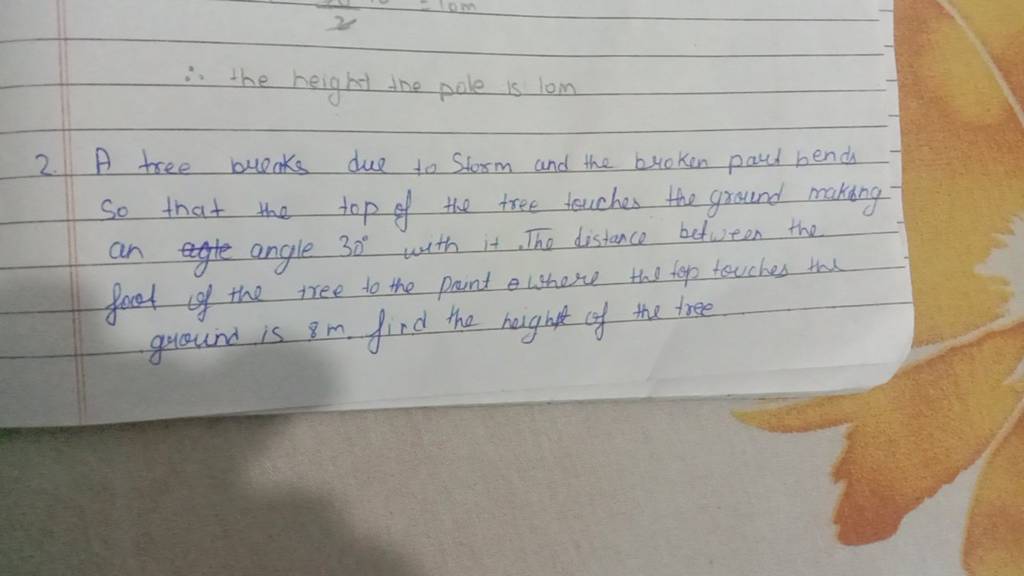 2 = 10m
∴ the height the pole is 10m
2. A tree breaks due to Storm and the broken part bends
So that the top of the tree touches the ground making
an angle 30° with it. The distance between the
foot of the tree to the point where the top touches the
ground is 8m. find the height of the tree